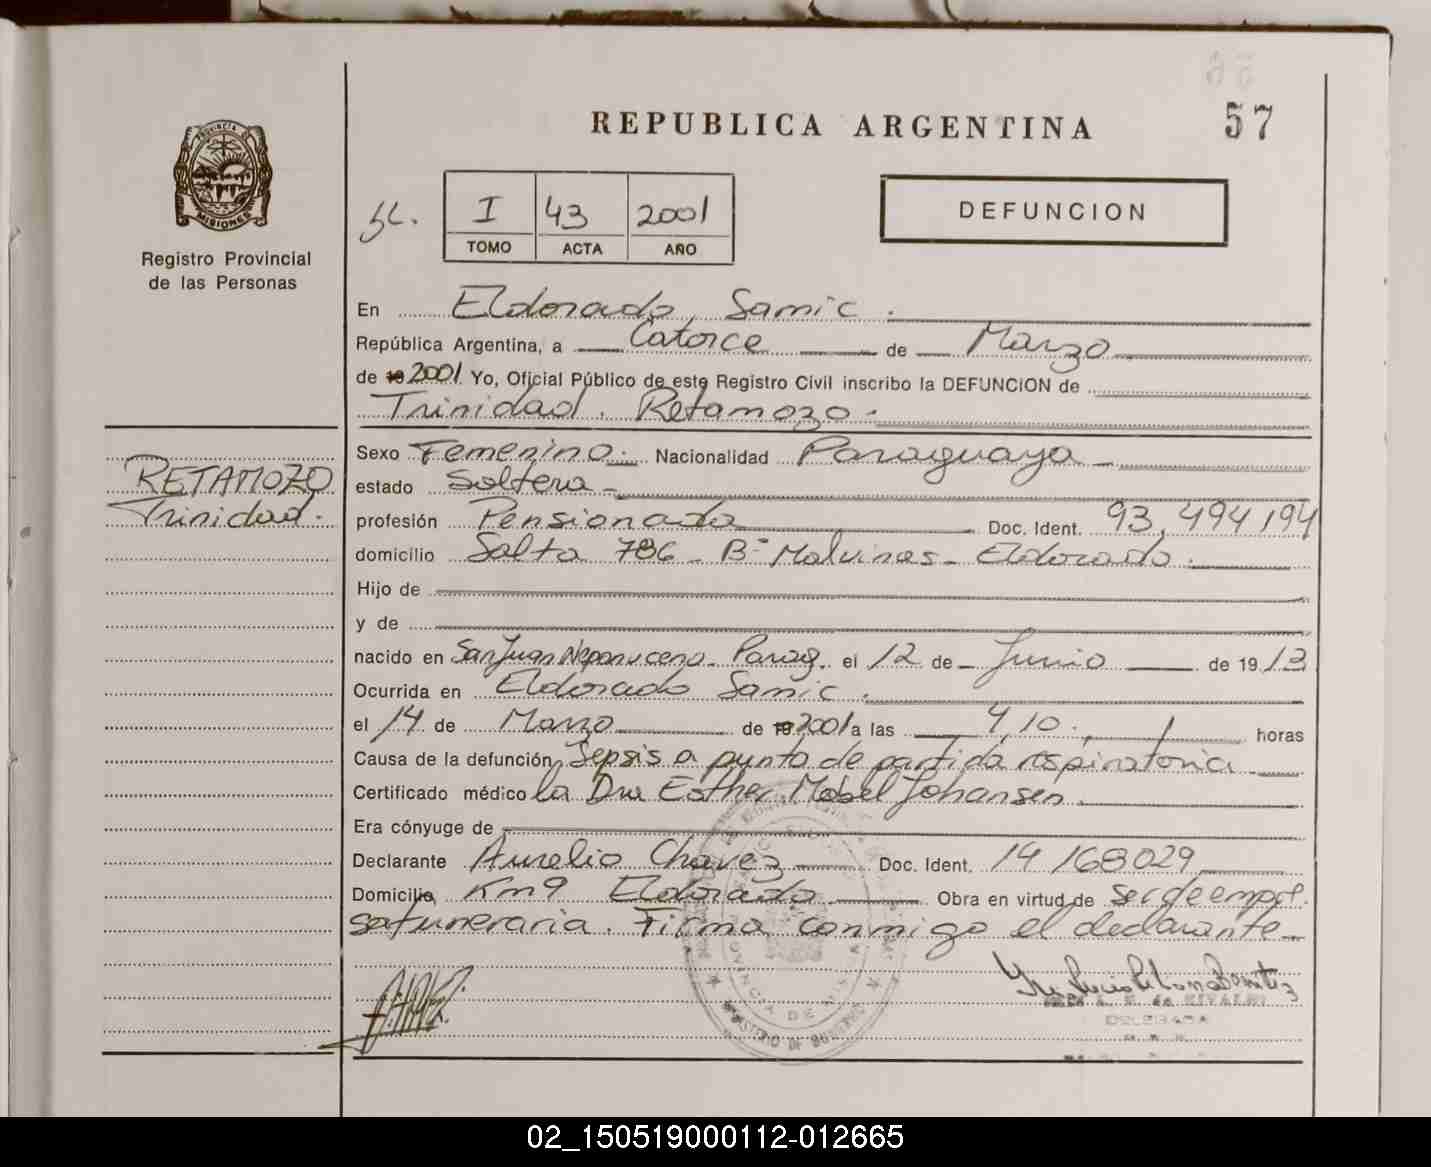 57
REPUBLICA ARGENTINA
PROVINCIA DE
MISIONES
Registro Provincial
de las Personas
I 43 2001
TOMO ACTA AÑO
DEFUNCION
En Eldorado, Samic.
República Argentina, a Catorce de Marzo
de 2001 Yo, Oficial Público de este Registro Civil inscribo la DEFUNCION de
Trinidad. Retamozo.
RETAMOZO
Trinidad.
Sexo Femenino. Nacionalidad Paraguaya
estado Soltera
profesión Pensionada Doc. Ident. 93,494,194
domicilio Salta 786 - Bº Malvinas - Eldorado.
Hijo de
y de
nacido en San Juan Nepomuceno - Parag. el 12 de Junio de 1913
Ocurrida en Eldorado Samic.
el 14 de Marzo de 2001 a las 4,10. horas
Causa de la defunción Sepsis a punto de partida respiratoria
Certificado médico la Dra Esther Mabel Johansen.
Era cónyuge de
Declarante Aurelio Chavez Doc. Ident. 14168029
Domicilio Km9 Eldorado Obra en virtud de ser de empre
sa funeraria. Firma conmigo el declarante
DELEGADA
02_150519000112-012665